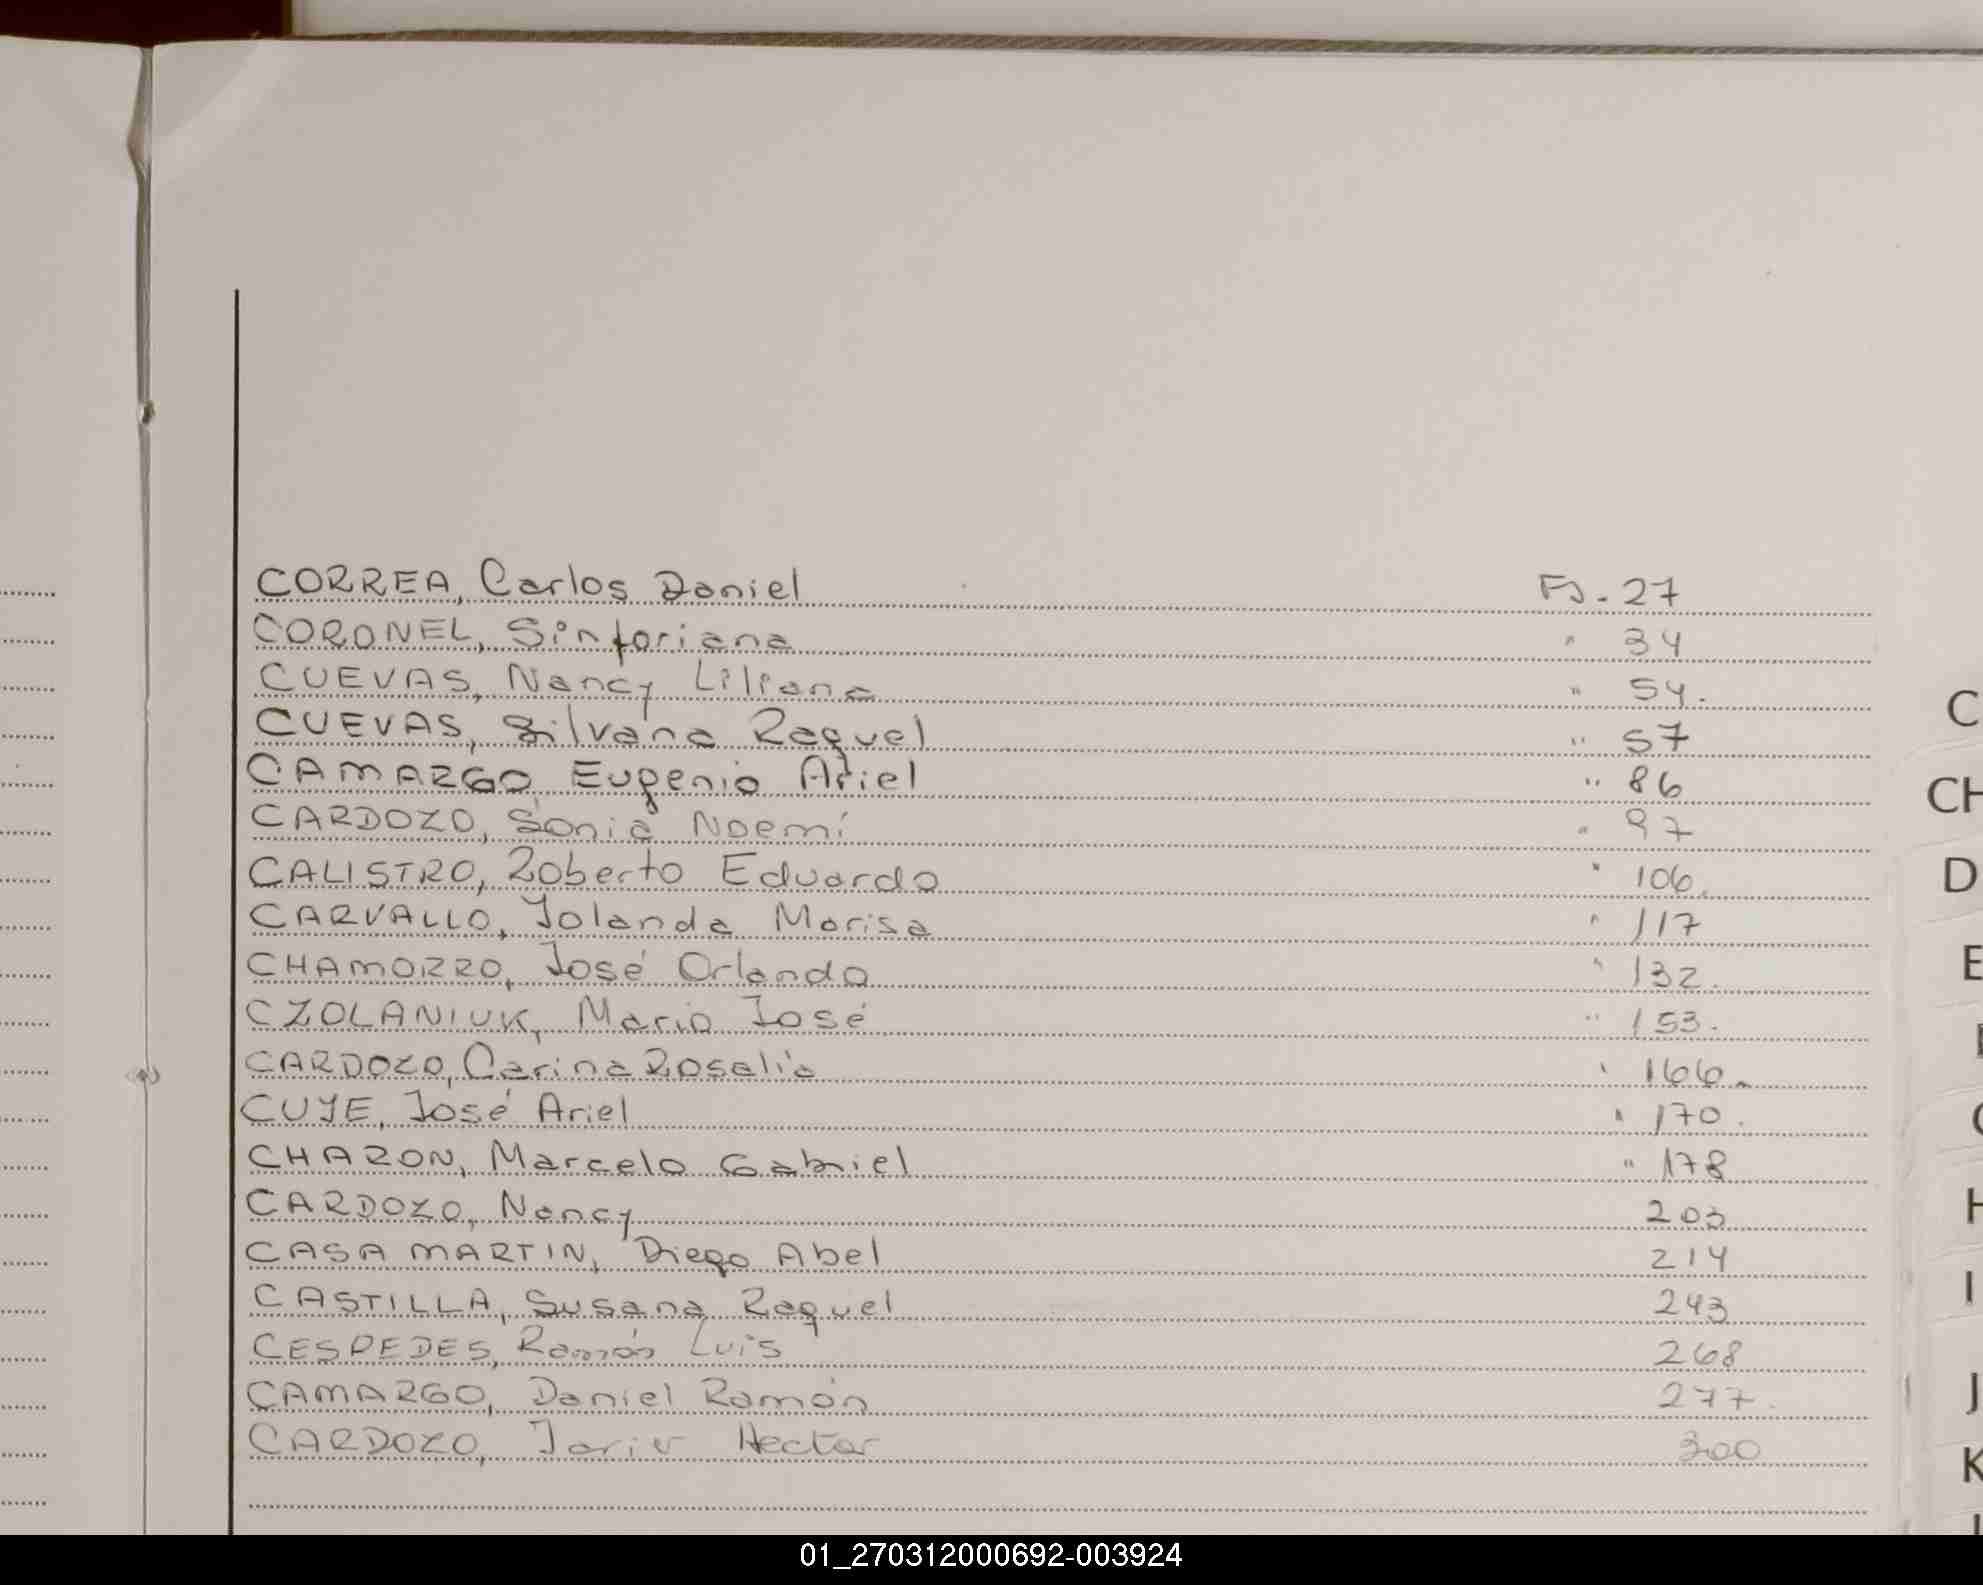 CORREA, Carlos Daniel FJ. 27
CORONEL, Sinforiana " 34
CUEVAS, Nancy Liliana " 54.
CUEVAS, Silvana Raquel " 57
CAMARGO Eugenio Ariel " 86
CARDOZO, Sonia Noemí " 97
CALISTRO, Roberto Eduardo " 106.
CARVALLO, Yolanda Marisa " 117
CHAMORRO, José Orlando " 132.
CZOLANIUK, Mario José " 153.
CARDOZO, Carina Rosalía " 166.
CUYE, José Ariel " 170.
CHARON, Marcelo Gabriel " 178
CARDOZO, Nancy 203
CASA MARTIN, Diego Abel 214
CASTILLA, Susana Raquel 243
CESPEDES, Ramón Luis 268
CAMARGO, Daniel Ramón 277.
CARDOZO, Hector 300
C
CH
D
E
H
I
J
K
01_270312000692-003924